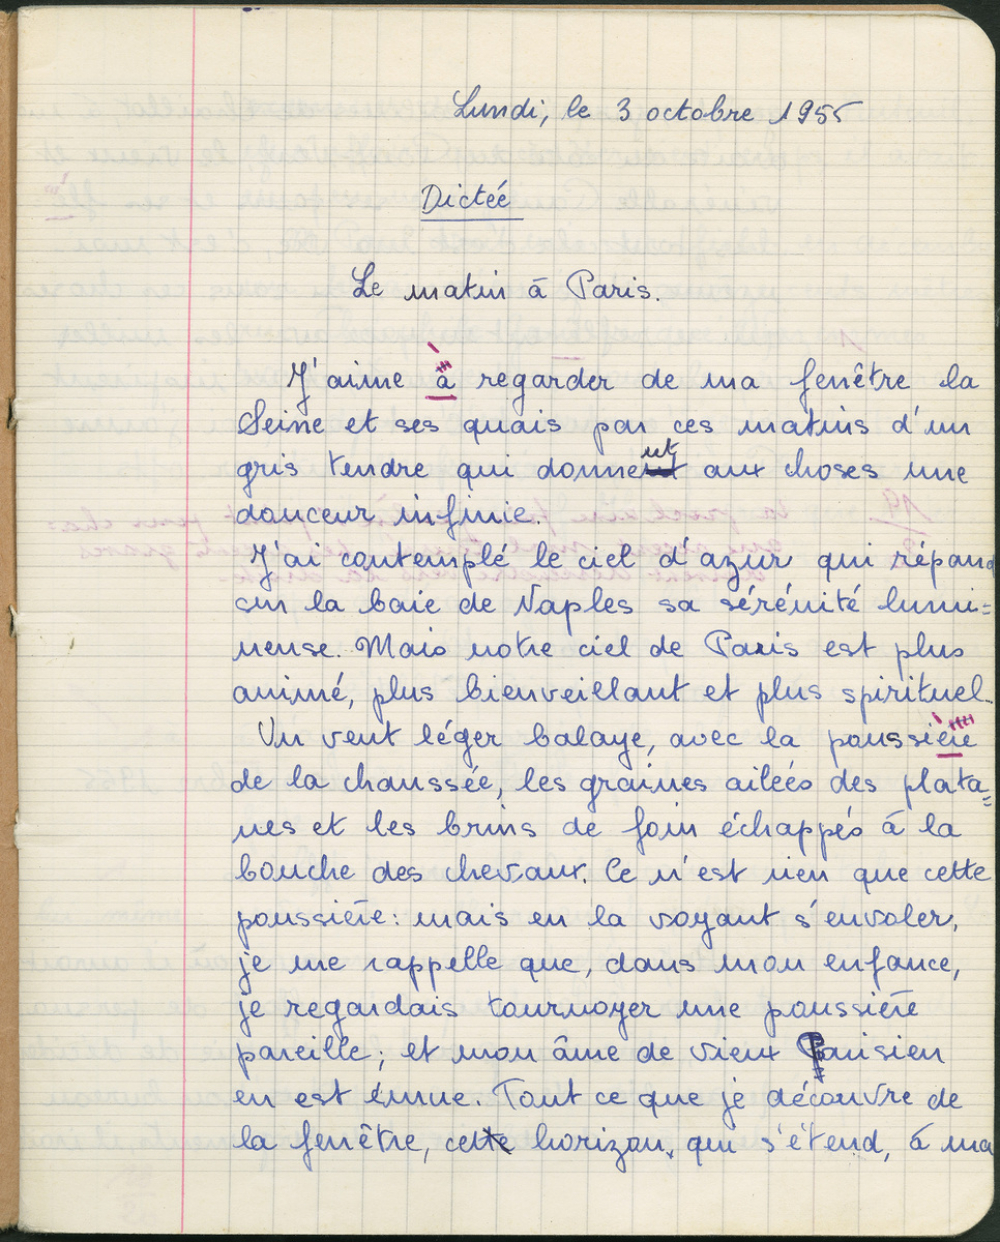 Lundi, le 3 octobre 1955
Dictée
Le matin à Paris.
J'aime à regarder de ma fenêtre la
Seine et ses quais par ces matins d'un
gris tendre qui donnent aux choses une
douceur infinie.
J'ai contemplé le ciel d'azur qui répand
sur la baie de Naples sa sérénité lumi=
neuse. Mais notre ciel de Paris est plus
animé, plus bienveillant et plus spirituel.
Un vent léger balaye, avec la poussière
de la chaussée, les graines ailées des plata=
nes et les brins de foin échappés à la
bouche des chevaux. Ce n'est rien que cette
poussière: mais en la voyant s'envoler,
je me rappelle que, dans mon enfance,
je regardais tournoyer une poussière
pareille; et mon âme de vieux Parisien
en est émue. Tout ce que je découvre de
la fenêtre, cette horizon, qui s'étend, à ma